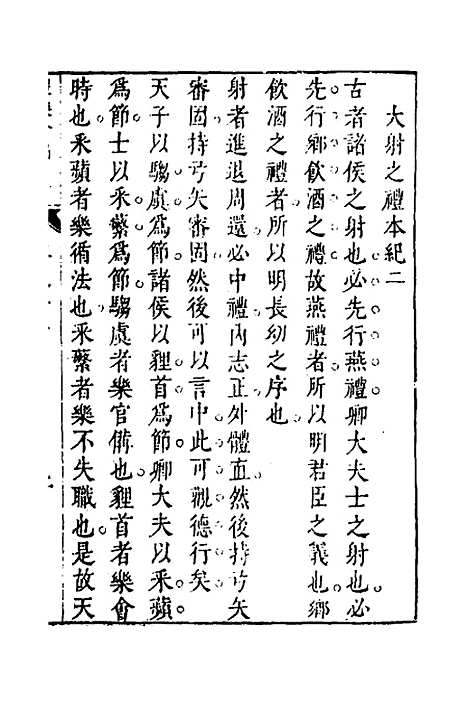 大射之禮本紀二
古者諸侯之射也必先行燕禮卿大夫士之射也必
先行鄉飲酒之禮故燕禮者所以明君臣之義也鄉
飲酒之禮者所以明長幼之序也
射者進退周還必中禮內志正外體直然後持弓矢
審固持弓矢審固然後可以言中此可觀德行矣
天子以騶虞爲節諸侯以貍首爲節卿大夫以采蘋
爲節士以采蘩爲節騶虞者樂官備也貍首者樂會
時也采蘋者樂循法也采蘩者樂不失職也是故天